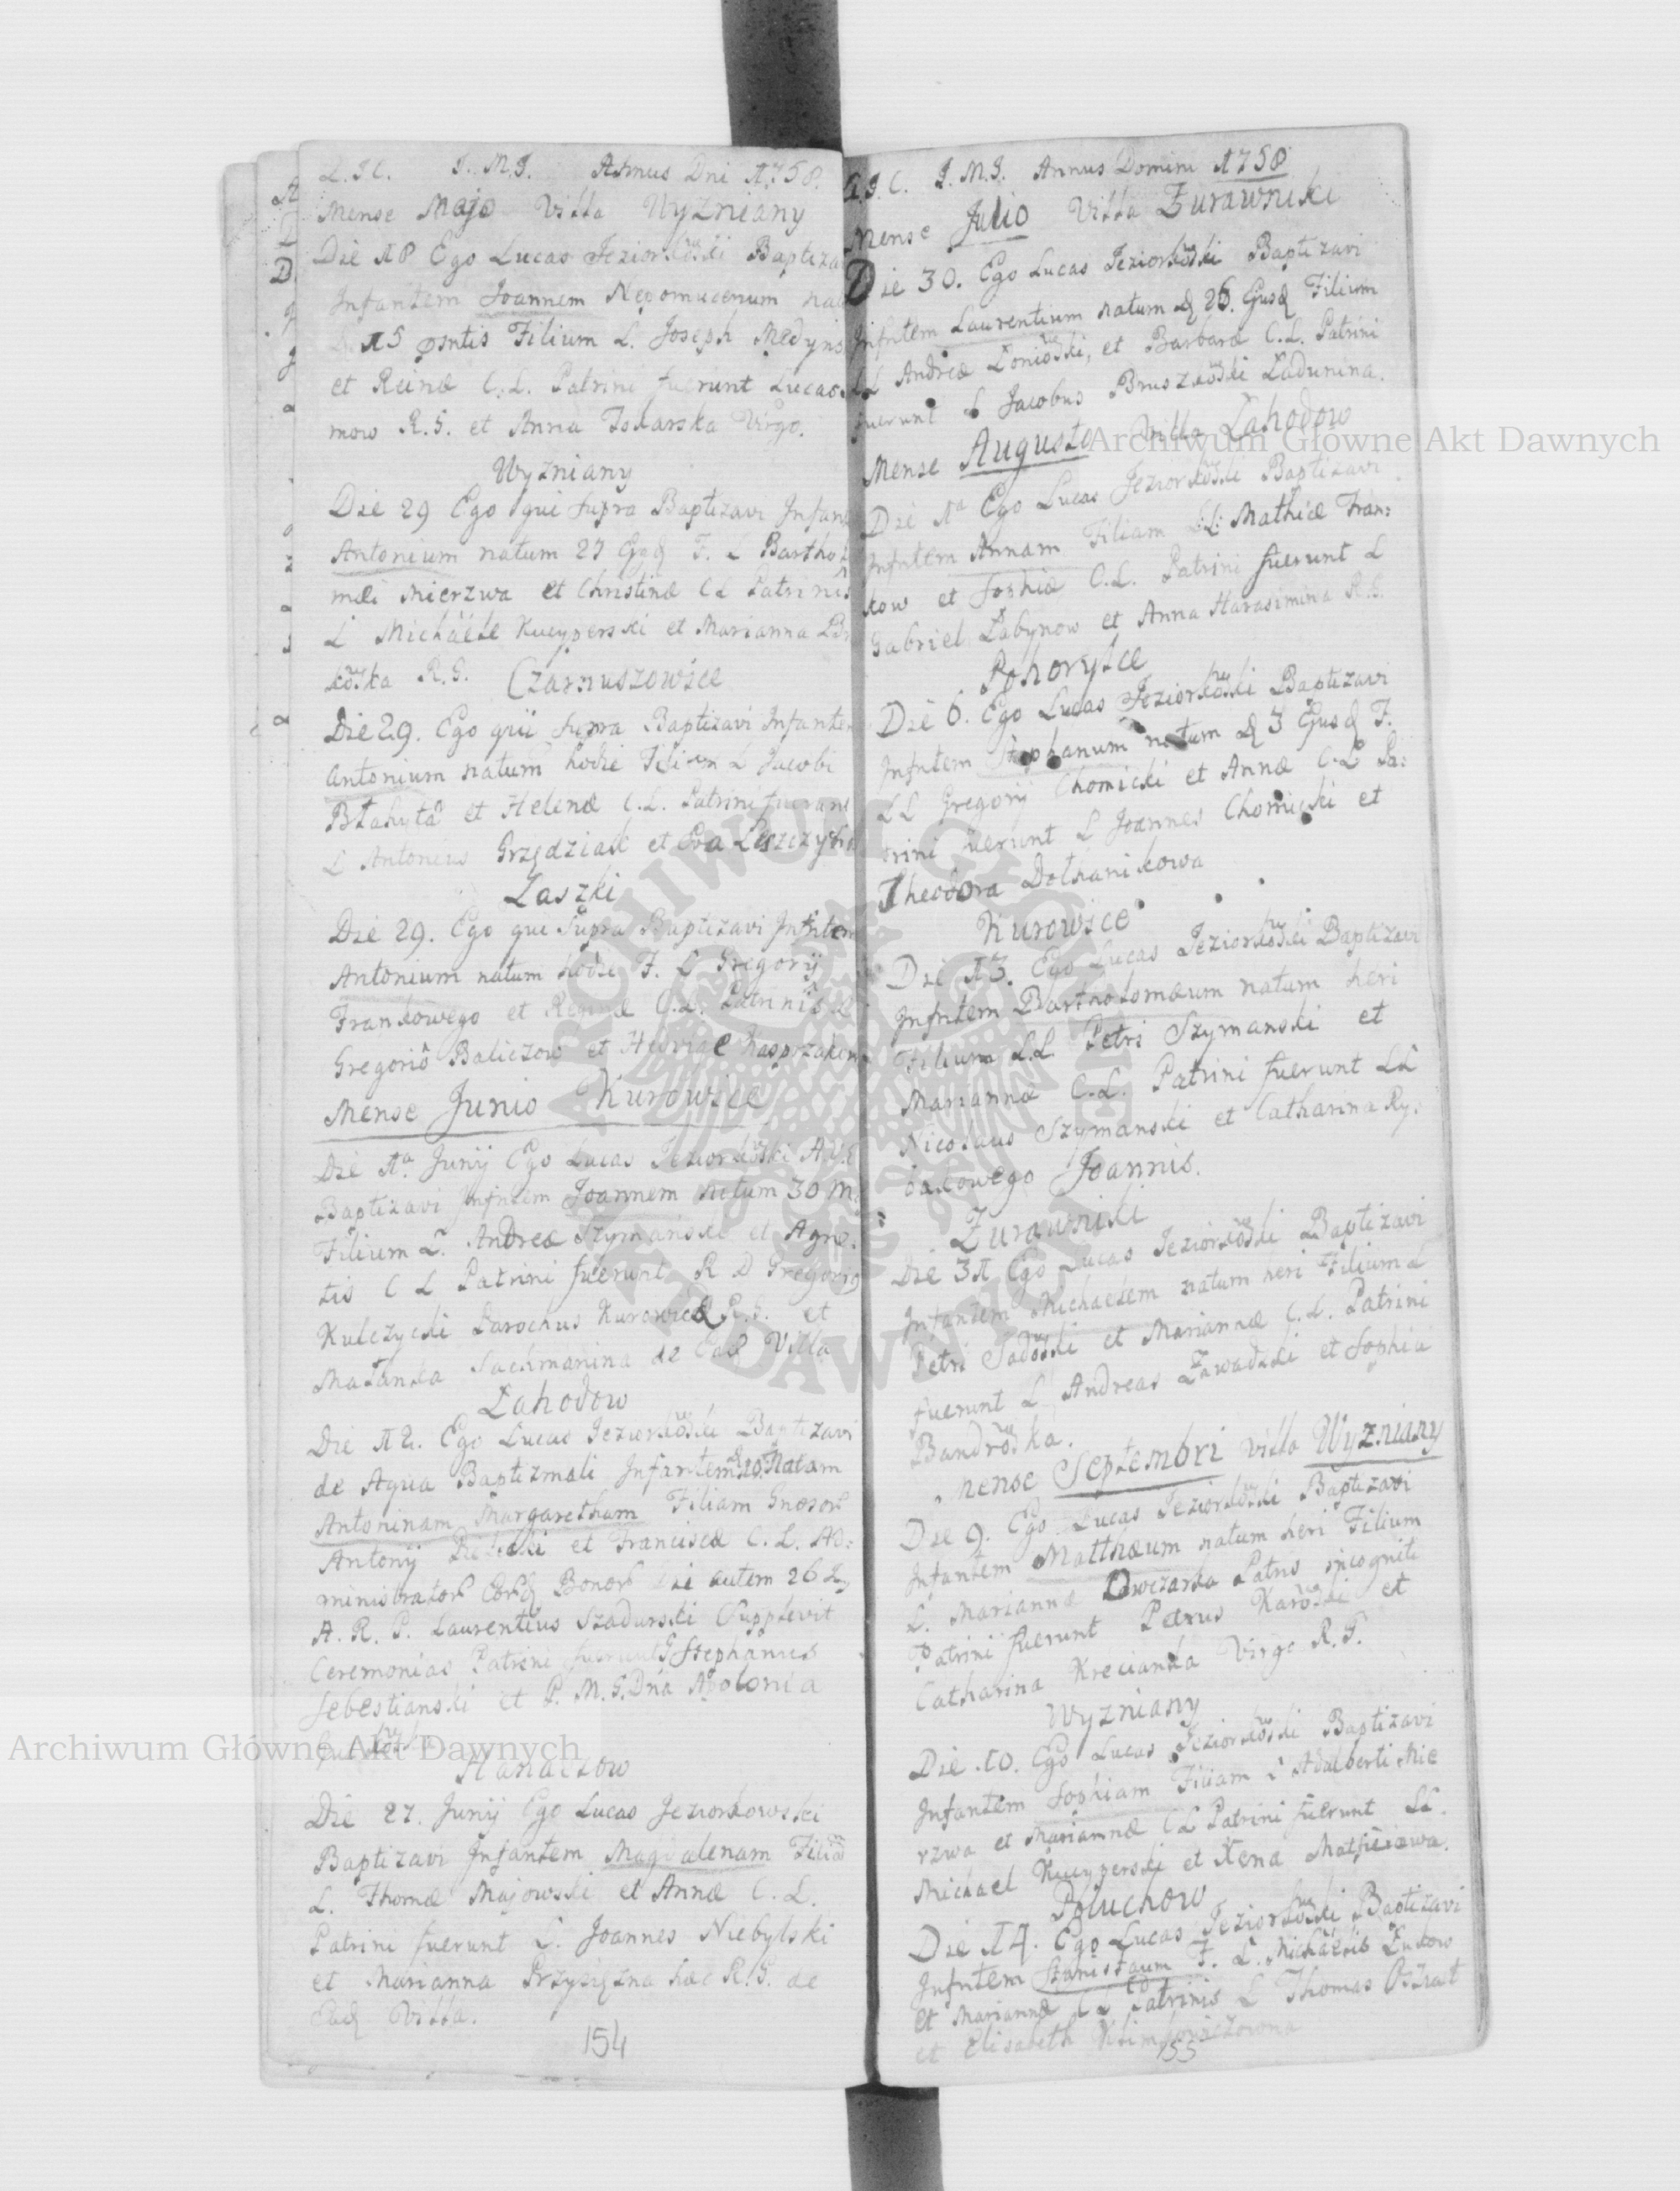 L. J C. J. M. J. Annus Dni 1758.
Mense Majo Villa Wyzniany
Die 18 Ego Lucas Jeziorkowski Baptiza
Infantem Joannem Nepomucenum na
15 psntis Filium L. Joseph Medyns
et Reinæ C. L. Patrini fuerunt Lucas
mow R. G. et Anna Tokarska Virgo.
Wyzniany
Die 29 Ego qui supra Baptizavi Infan
Antonium natum 27 F. L Bartho
mæi Mierzwa et Christinæ C L Patrinis
L Michaele Kucyperski et Marianna
kowska R. G. Czarnuszowice
Die 29. Ego qui supra Baptizavi Infantem
Antonium natum hodie Filium L Jacobi
Błahyta et Helenæ C. L. Patrini fuerunt
L Antonius Grzędziak et Eva Leszczyńs
Laszki
Die 29. Ego qui Supra Baptizavi Infntem
Antonium natum hodie F. L Gregorij
Frankowego et Reginæ C. L. Patrinis L
Gregorio Baliczow et Hedvige
Mense Junio Kurowice
Die 1a Junij Ego Lucas Jeziorkowski
Baptizavi Infntem Joannem natum 30 M
Filium L. Andreæ Szymanski et Agne:
tis C L Patrini fuerunt R D Gregorig
Kulczycki Parochus Kurowice R. G. et
Małanka Suchmanina de Ead Villa
Lahodow
Die 12. Ego Lucas Jeziorkowski Baptizavi
de Aqua Baptizmali Infantem 10 Natam
Antoninam Margaretham Filiam Gnosor
Antonij et Franciscæ C. L. Ad:
ministrator Bonor Die autem 26
A. R. P. Laurentius Szadurski Supplevit
Ceremonias Patrini fuerunt G Stephanus
Sebestianski et P. M. G. Dna Apolonia
Hanaczow
Die 27. Junij Ego Lucas Jeziorkowski
Baptizavi Infantem Magdalenam Filiam
L. Thomæ Majowski et Annæ C. L.
Patrini fuerunt L. Joannes Niebylski
et Marianna Przysiężna hæc R. G. de
Ead Villa.
154
J C. J. M. J. Annus Domini 1758
Mense Julio Villa Zurawniki
Die 30. Ego Lucas Jeziorkowski Baptizavi
Infntem Laurentium natum d 26. Filium
LL Andreæ Łoniowski, et Barbaræ C. L. Patrini
fuerunt L Jacobus Bruszkowski Ładunina.
Mense Augusto Villa Lahodow
Die 1a Ego Lucas Jeziorkowski Baptizavi
Infntem Annam Filiam L. L. Mathiæ Fran:
kow et Sophiæ C. L. Patrini fuerunt L
Gabriel Łabynow et Anna Harasimina R. G.
Pohorylce
Die 6. Ego Lucas Jeziorkowski Baptizavi
Infntem Stephanum natum d 3 F.
LL Gregorij Chomicki et Annæ C. L Pa:
trini fuerunt L Joannes Chomicki et
Theodora Dolhanikowa
Kurowice
Die 13. Ego Lucas Jeziorkowski Baptizavi
Infntem Bartholomæum natum heri
Filium L. L. Petri Szymanski et
Mariannæ C. L. Patrini fuerunt LL
Nicolaus Szymanski et Catharina Ry:
bakowego Joannis.
Zurawniki
Die 31 Ego Lucas Jeziorkowski Baptizavi
Infantem Michaelem natum heri Filium L
Petri Sadowski et Mariannæ C. L. Patrini
fuerunt L Andreas Zawadski et Sophia
Bandrowska.
mense Septembri villa Wyzniany
Die 9. Ego Lucas Jeziorkowski Baptizavi
Infantem Matthæum natum heri Filium
L. Mariannæ Owczarka Patris incogniti
Patrini fuerunt Petrus Karowski et
Catharina Krecianka Virgo R. G.
Wyzniany
Die 10. Ego Lucas Jeziorkowski Baptizavi
Infantem Sophiam Filiam L Adalberti Mie
rzwa et Mariannæ C L Patrini fuerunt LL.
Michael Kucyperski et Xena
Poluchow
Die 14. Ego Lucas Jeziorkowski Baptizavi
Infntem Stanislaum F. L. Michaelis Zukow
et Mariannæ C L Patrinis L Thomas
et Elisabeth
155
Archiwum Główne Akt Dawnych
Archiwum Główne Akt Dawnych
ARCHIWUM GŁÓWNE AKT DAWNYCH